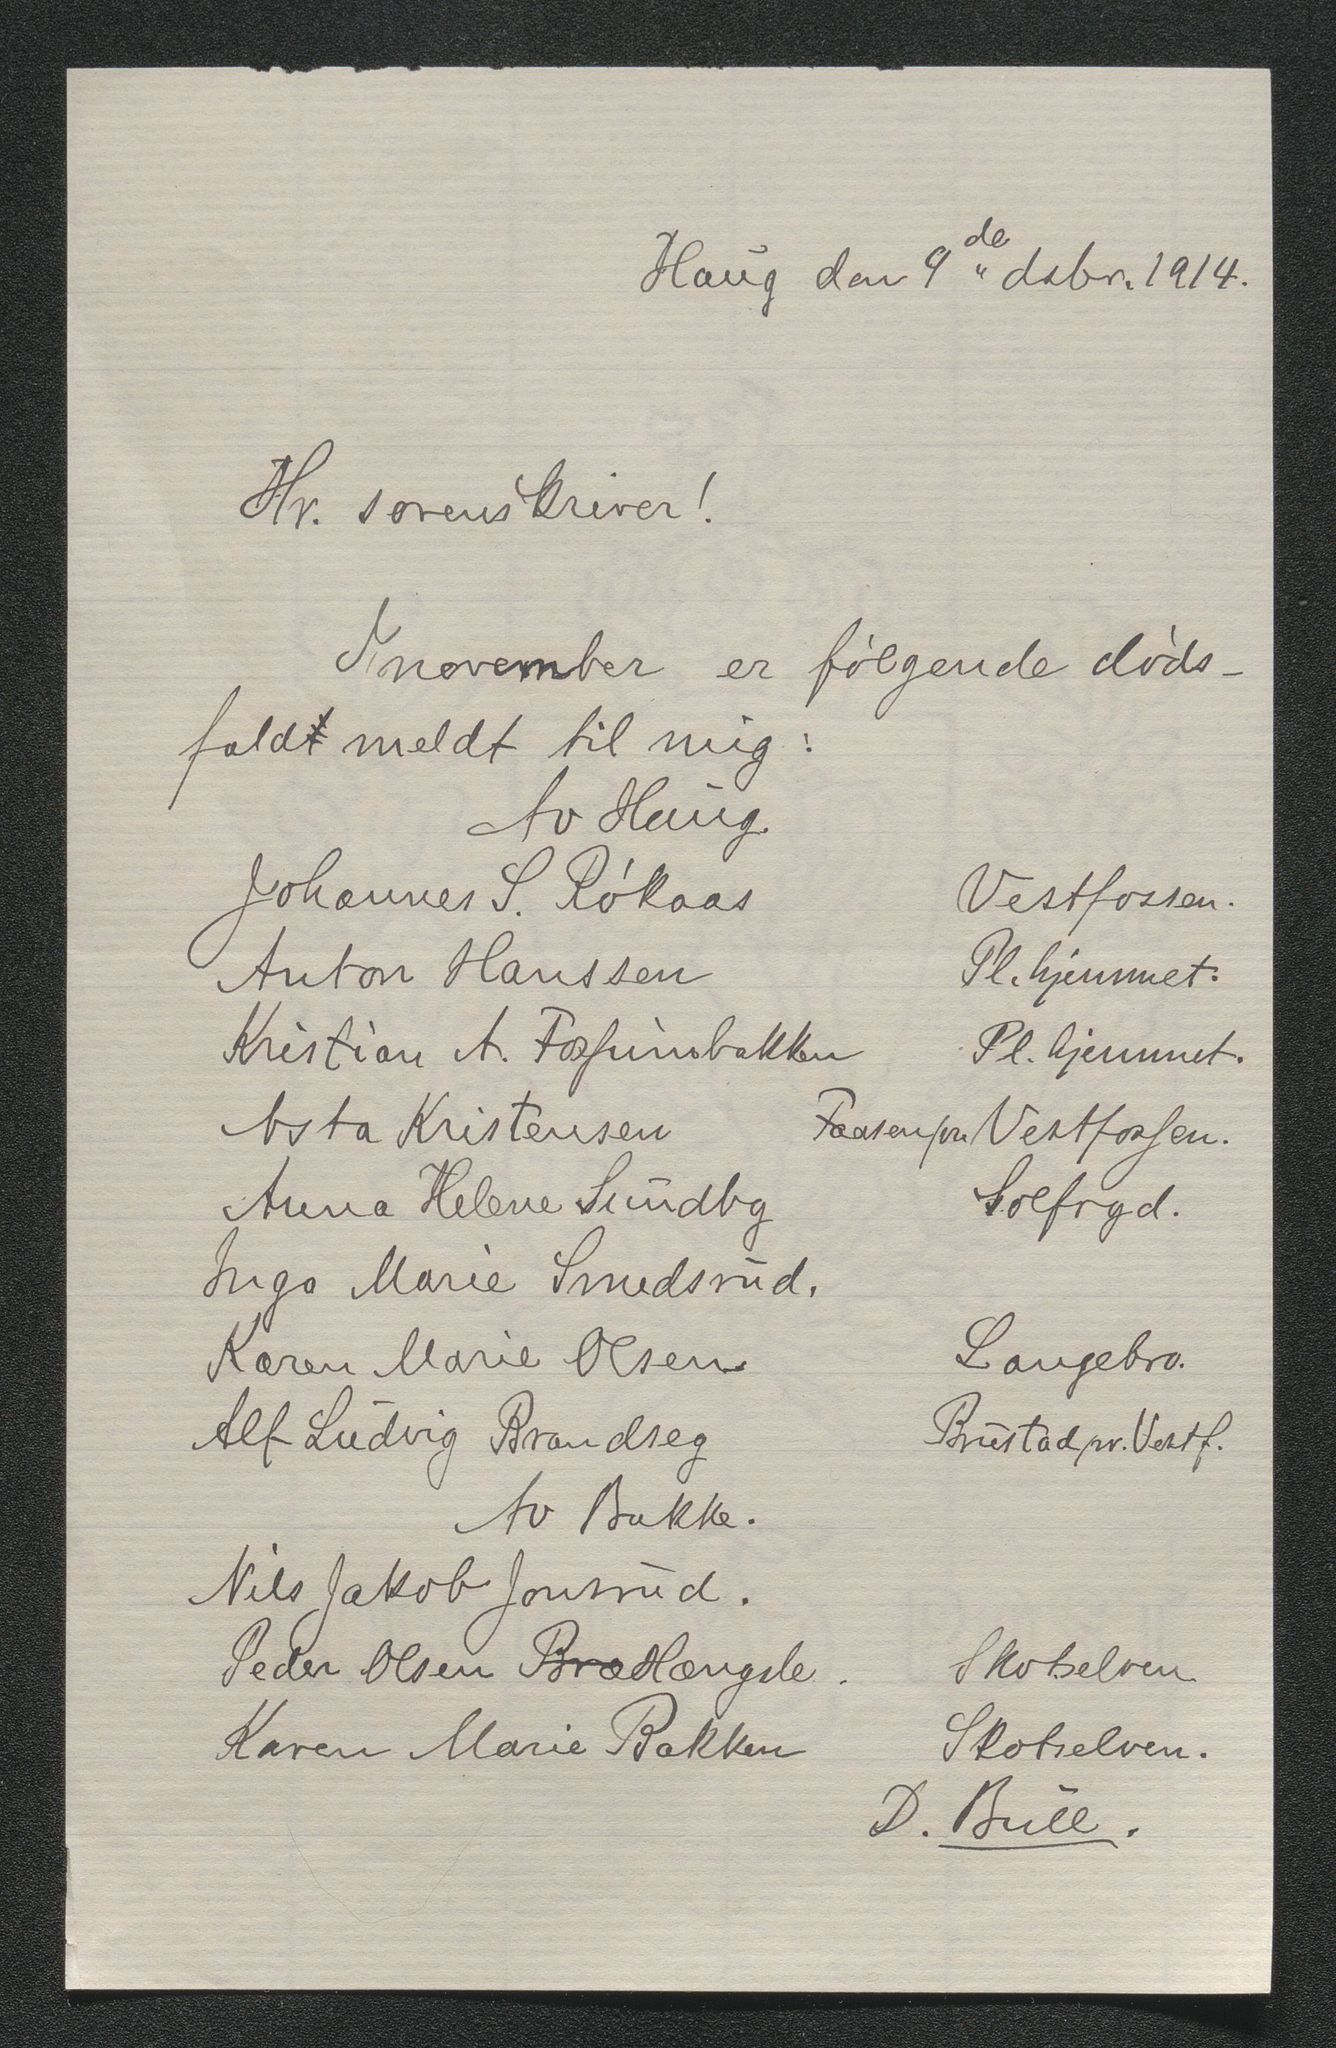 Haug den 9de dsbr. 1914.
Hr. sorenskriver!
I november er følgende døds-
fald meldt til mig:
Av Haug.
Johannes S. Rökaas Vestfossen.
Anton Hanssen Pl. hjemmet.
Kristian A. Fossumbakken Pl. hjemmet.
Asta Kristensen Faasen pr. Vestfossen.
Anna Helene Sundby Solfryd.
Inga Marie Smedsrud.
Karen Marie Olsen Langebro.
Alf Ludvig Brandseg Brustad pr. Vestf.
Av Bakke.
Nils Jakob Jonsrud.
Peder Olsen Hængsle. Skotselven
Karen Marie Bakken Skotselven.
D. Bull.